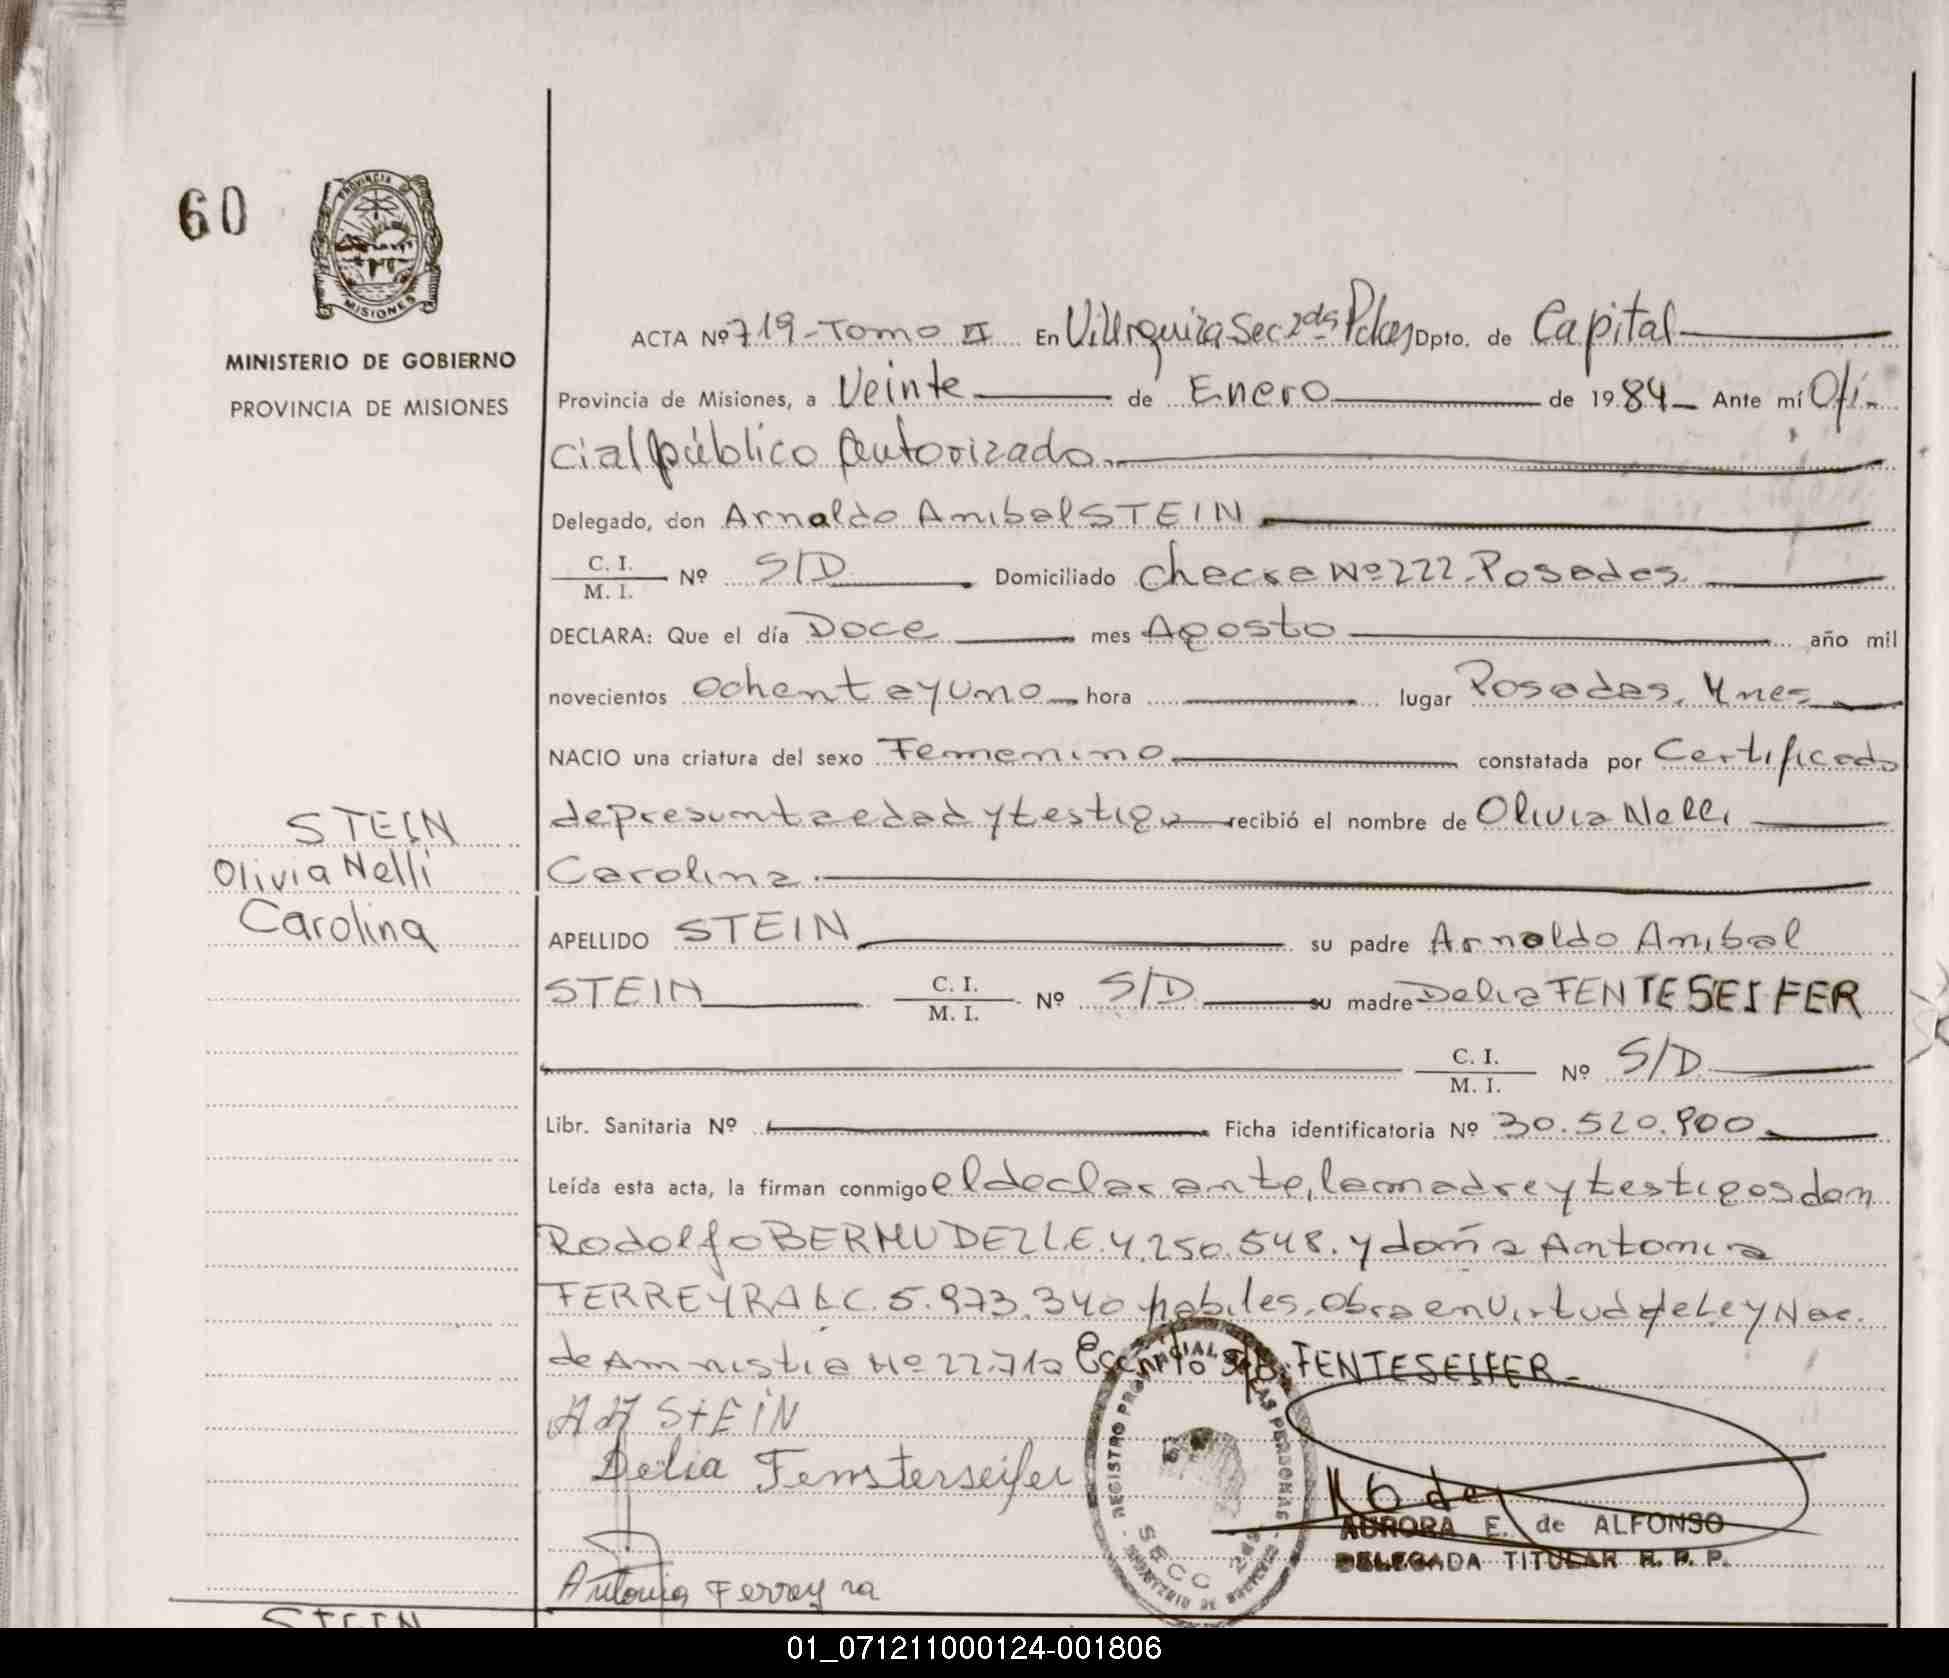 60
PROVINCIA DE
MISIONES
MINISTERIO DE GOBIERNO
PROVINCIA DE MISIONES
ACTA Nº 719-Tomo II En Vill Urquiza Sec 2da Pdas Dpto. de Capital
Provincia de Misiones, a Veinte de Enero de 1984 Ante mí Ofi-
cial público Autorizado
Delegado, don Arnaldo Anibal STEIN
C. I.
M. I. Nº S/D Domiciliado Nº 222 Posadas
DECLARA: Que el día Doce mes Agosto año mil
novecientos Ochenta y Uno hora lugar Posadas, Mnes
NACIO una criatura del sexo Femenino constatada por Certificado
de presunta edad y testigo recibió el nombre de Olivia Nelli
Carolina.
STEIN
Olivia Nelli
Carolina
APELLIDO STEIN su padre Arnaldo Anibal
STEIN C. I.
M. I. Nº S/D su madre Delia FENTESEIFER
C. I.
M. I. Nº S/D
Libr. Sanitaria Nº Ficha identificatoria Nº 30.520.900
Leída esta acta, la firman conmigo el declarante, la madre y testigos don
Rodolfo BERMUDEZ L.E. 4.250.548. y doña Antonia
FERREYRA L C. 5.973.340 habiles. Obra en Virtud de Ley Nac.
de Amnistia Nº 22.710 Escrito S/B: FENTESEIFER_
A A STEIN
Delia Fensterseifer
Antonia Ferreyra
REGISTRO PROVINCIAL DE LAS PERSONAS
MINISTERIO DE GOBIERNO
SECC 2da
AURORA E. de ALFONSO
DELEGADA TITULAR R. P. P.
STEIN
01_071211000124-001806